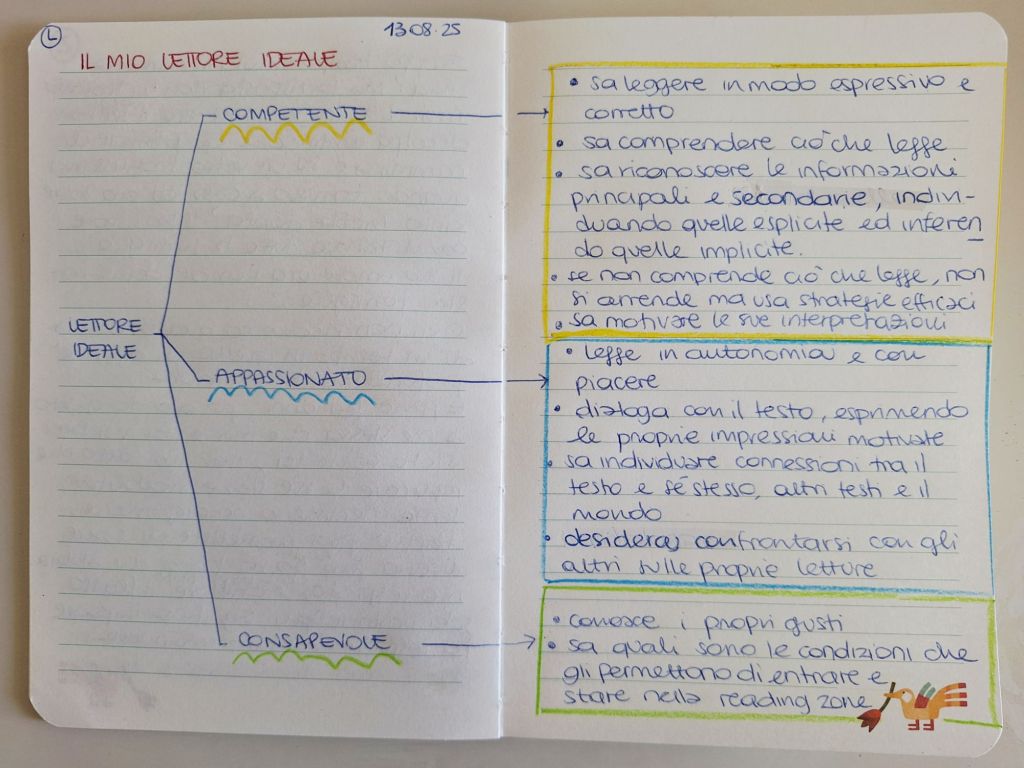 L
13.08.25
IL MIO LETTORE IDEALE
COMPETENTE
LETTORE
IDEALE
APPASSIONATO
CONSAPEVOLE
• sa leggere in modo espressivo e
corretto
• sa comprendere ciò che legge
• sa riconoscere le informazioni
principali e secondarie, indivi-
duando quelle esplicite ed inferen
do quelle implicite.
• se non comprende ciò che legge, non
si arrende ma usa strategie efficaci
• sa motivare le sue interpretazioni
• legge in autonomia e con
piacere
• dialoga con il testo, esprimendo
le proprie impressioni motivate
• sa individuare connessioni tra il
testo e sé stesso, altri testi e il
mondo
• desidera confrontarsi con gli
altri sulle proprie letture
• conosce i propri gusti
• sa quali sono le condizioni che
gli permettono di entrare e
stare nella reading zone